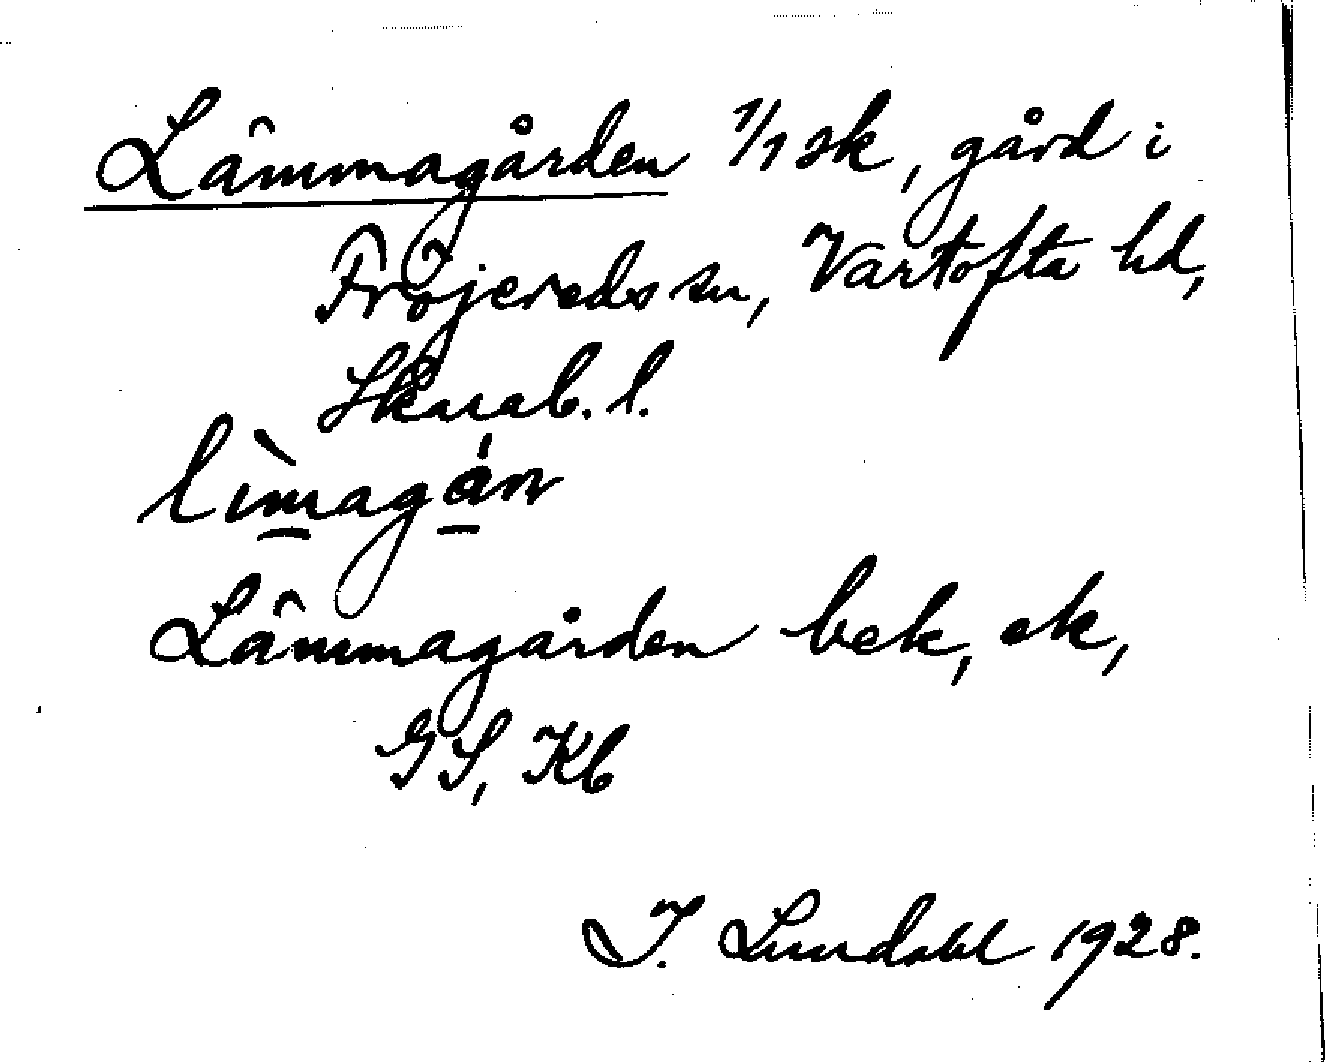 Lämmagården 1/1 sk, gård i
Fröjereds sn, Vartofta hd,
Skarab. l.
lìmagán
Lämmagården bek, ek,
GS, Kb
I. Lundahl 1928.